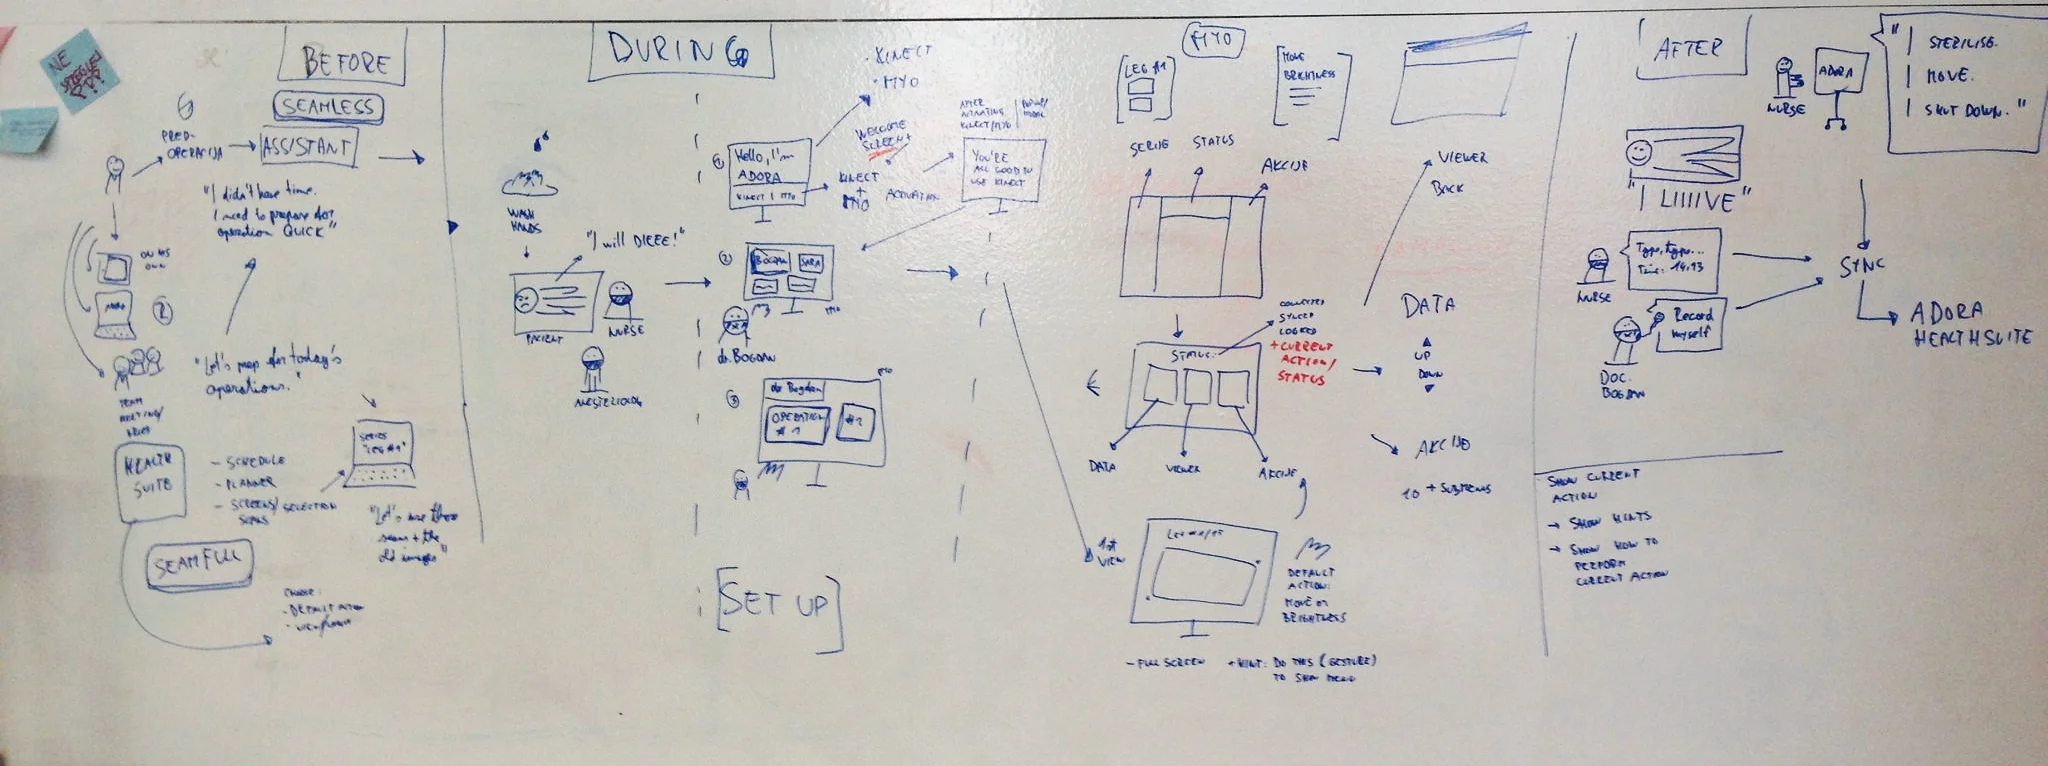 NE
BEFORE
SEAMLESS
PRED-
OPERACIJA
ASSISTANT
"I didn't have time.
I need to prepare for
operation QUICK"
ON HIS
OWN
2
"Let's prep for today's
operations."
TEAM
MEETING/
HEALTH
SUITE
- SCHEDULE
- PLANNER
- SCREENS/SELECTION
SCANS
SERIES
"LEG #1"
"Let's use these
scans + the
old images"
SEAMFULL
CHOOSE:
- DEFAULT
DURING
WASH
HANDS
"I will DIEEE!"
PATIENT
NURSE
ANESTEZIOLOG
· KINECT
· MYO
1
Hello, I'm
ADORA
KINECT | MYO
WELCOME
SCREEN
KINECT
+
MYO
ACTIVATION
AFTER
ACTIVATING
KINECT/MYO
YOU'RE
ALL GOOD TO
USE KINECT
2
BOGDAN
SARA
MYO
dr. BOGDAN
3
MYO
dr Bogdan
OPERATION
#1
#2
[SET UP]
MYO
LEG #1
MOVE
BRIGHTNESS
SERIJE
STATUS
AKCIJE
VIEWER
BACK
STATUS
COLLECTED
SYNCED
LOGGED
+ CURRENT
ACTION/
STATUS
DATA
VIEWER
AKCIJE
DATA
UP
DOWN
AKCIJE
10 + SUBMENUS
1st
VIEW
DEFAULT
ACTION:
MOVE or
BRIGHTNESS
- FULL SCREEN
+ HINT: DO THIS (GESTURE)
TO SEE MENU
AFTER
NURSE
ADORA
" | STERILISE.
| MOVE.
| SHUT DOWN."
"I LIIIIVE"
Type, type...
Time: 14:13
NURSE
Record
myself
DOC.
BOGDAN
SYNC
ADORA
HEALTHSUITE
SHOW CURRENT
ACTION
→ SHOW HINTS
→ SHOW HOW TO
PERFORM
CURRENT ACTION